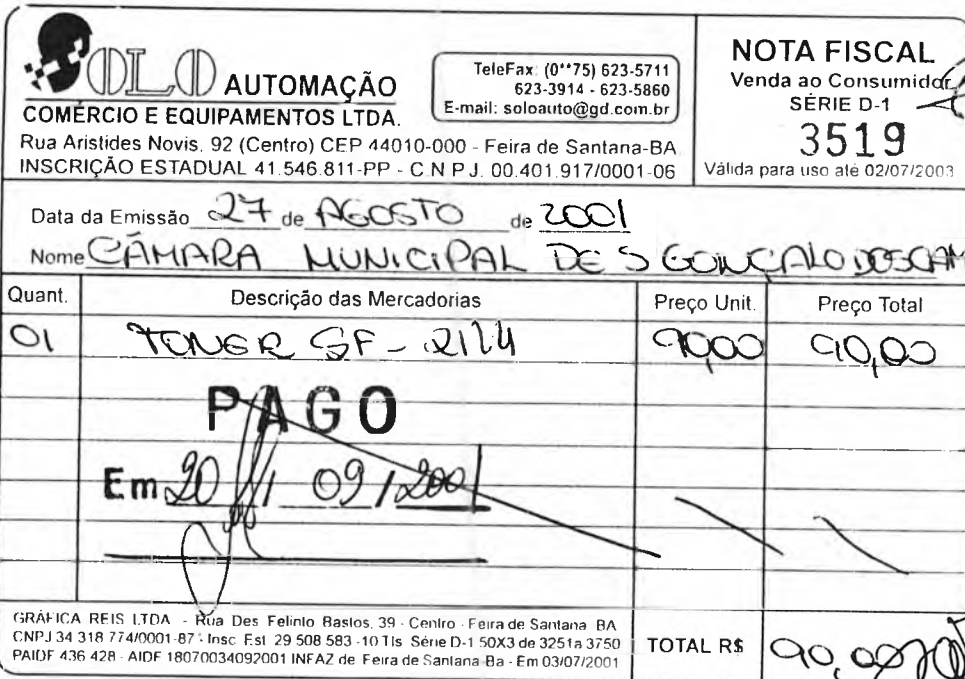 SOLO AUTOMAÇÃO
COMÉRCIO E EQUIPAMENTOS LTDA.
TeleFax: (0**75) 623-5711
623-3914 - 623-5860
E-mail: soloauto@gd.com.br
Rua Aristides Novis, 92 (Centro) CEP 44010-000 - Feira de Santana-BA
INSCRIÇÃO ESTADUAL 41.546.811-PP - C.N.P.J. 00.401.917/0001-06
NOTA FISCAL
Venda ao Consumidor
SÉRIE D-1
3519
Válida para uso até 02/07/2003
Data da Emissão 27 de AGOSTO de 2001
Nome CÂMARA MUNICIPAL DE S GONÇALO DOS CAM
Quant. Descrição das Mercadorias Preço Unit. Preço Total
01 TONER SF - 2114 90,00 90,00
PAGO
Em 20 / 09 / 2001
GRÁFICA REIS LTDA - Rua Des Felinto Bastos, 39 - Centro - Feira de Santana BA
CNPJ 34 318 774/0001-87 - Insc. Est 29 508 583 - 10 Tls Série D-1 50X3 de 3251a 3750
PAIDF 436 428 - AIDF 18070034092001 INFAZ de Feira de Santana-Ba - Em 03/07/2001
TOTAL R$ 90,00